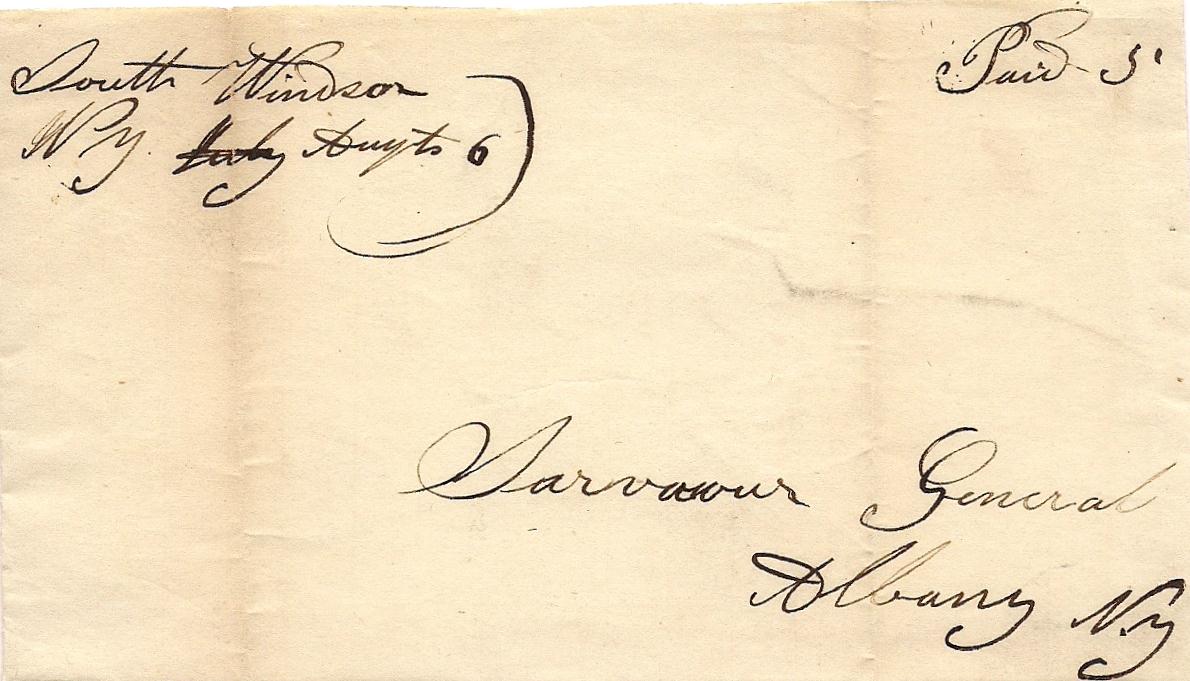 South Windsor
NY. July Augts 6
Paid 5'
Sarvaour General
Albany N.y